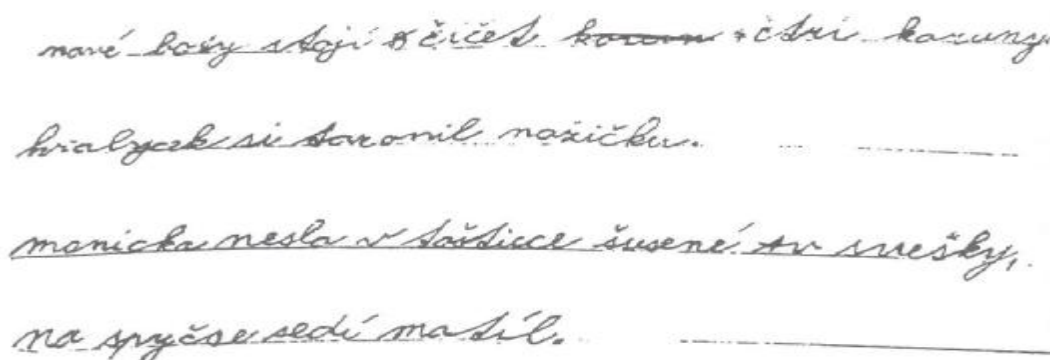 nové body stojí čičet korun čtri koruny.
hralyzk si taronil nožičku.
manicka nesla v tašticce šusené sv svešky,
na spyčse sedí matíl.